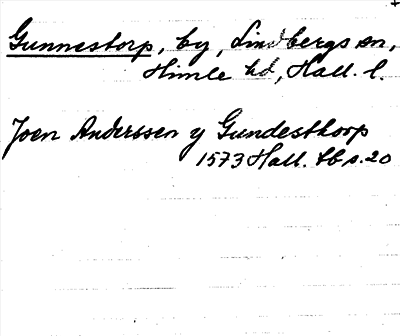 Gunnestorp, by, Lindbergs sn,
Himle hd, Hall. l.
Joen Anderssen y Gundesthorp
1573 Hall. tb s. 20